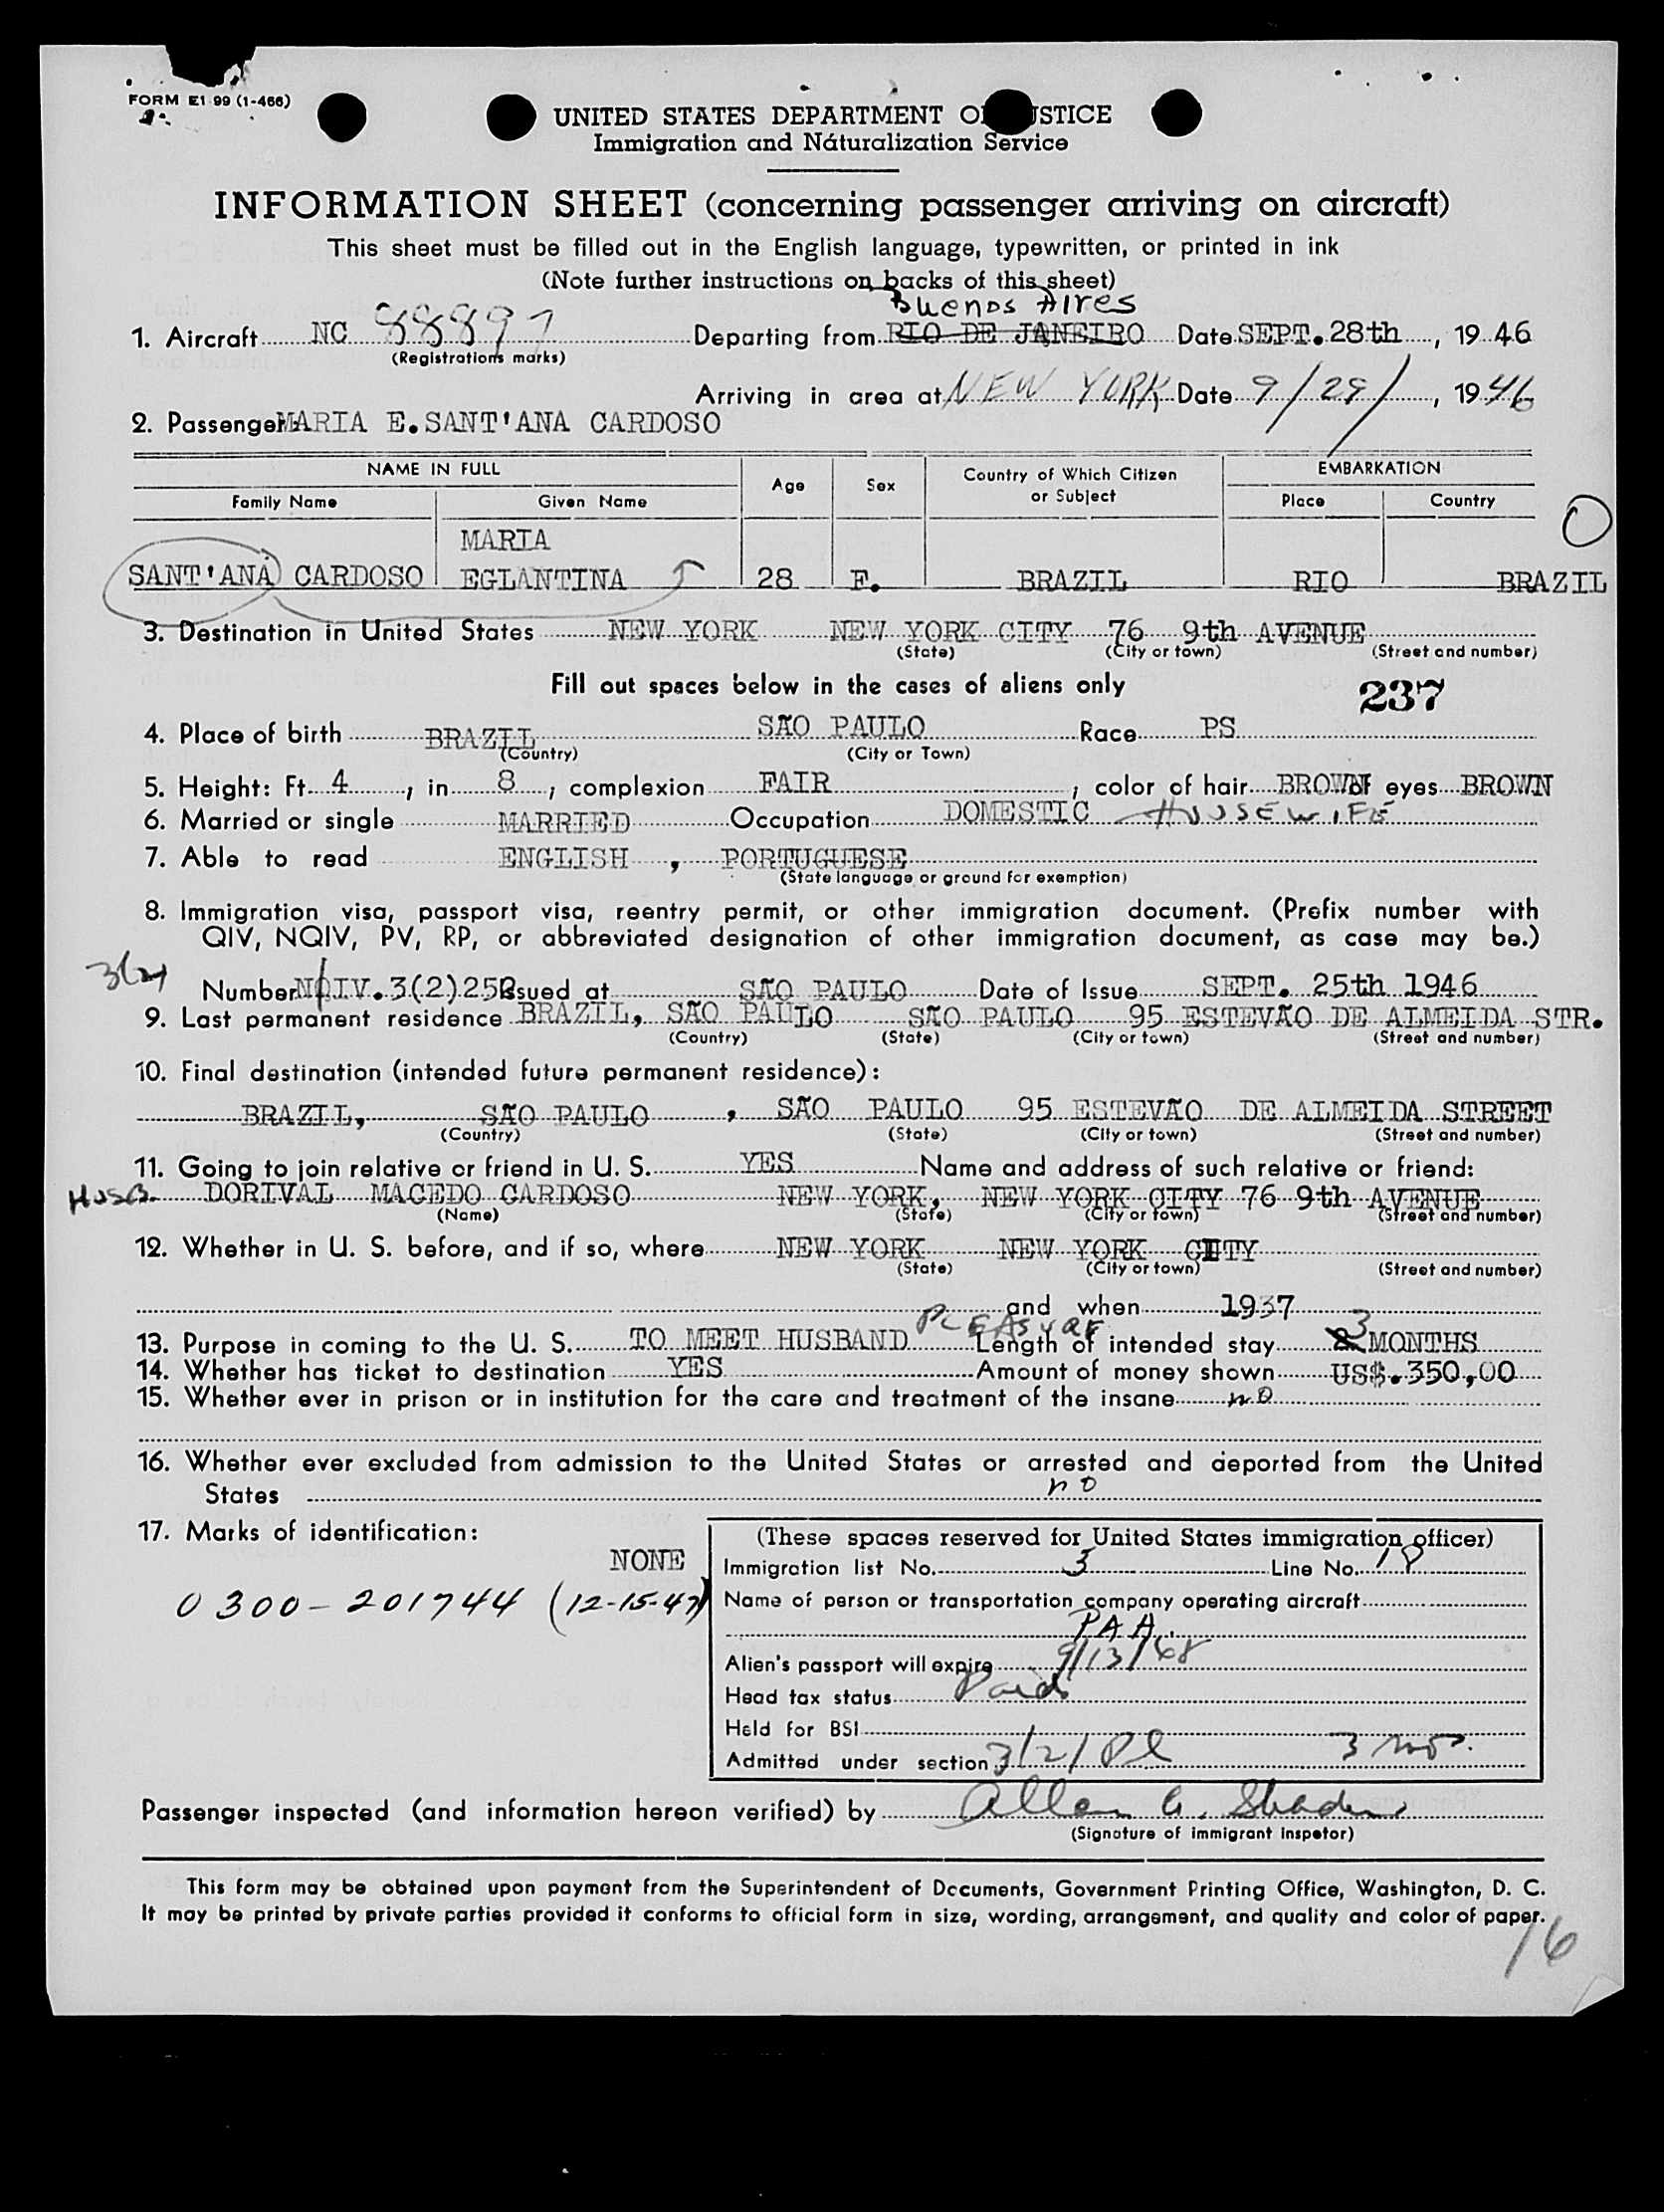 FORM E1 99 (1-466)
UNITED STATES DEPARTMENT O STICE
Immigration and Naturalization Service
INFORMATION SHEET (concerning passenger arriving on aircraft)
This sheet must be filled out in the English language, typewritten, or printed in ink
(Note further instructions on backs of this sheet)
Buenos Aires
1. Aircraft NC 88897 Departing from RIO DE JANEIRO Date SEPT. 28th, 19 46
(Registrations marks)
Arriving in area at NEW YORK Date 9/29/, 19 46
2. Passenger MARIA E. SANT'ANA CARDOSO
NAME IN FULL Age Sex Country of Which Citizen or Subject EMBARKATION
Family Name Given Name Place Country
MARIA
SANT'ANA CARDOSO EGLANTINA 28 F. BRAZIL RIO BRAZIL
3. Destination in United States NEW YORK NEW YORK CITY 76 9th AVENUE
(State) (City or town) (Street and number)
Fill out spaces below in the cases of aliens only
237
4. Place of birth BRAZIL SÃO PAULO Race PS
(Country) (City or Town)
5. Height: Ft. 4, in 8, complexion FAIR, color of hair BROWN of eyes BROWN
6. Married or single MARRIED Occupation DOMESTIC HOUSEWIFE
7. Able to read ENGLISH, PORTUGUESE
(State language or ground for exemption)
8. Immigration visa, passport visa, reentry permit, or other immigration document. (Prefix number with
QIV, NQIV, PV, RP, or abbreviated designation of other immigration document, as case may be.)
3(2)
Number IV. 3(2) Issued at SÃO PAULO Date of Issue SEPT. 25th 1946
9. Last permanent residence BRAZIL, SÃO PAULO SÃO PAULO 95 ESTEVÃO DE ALMEIDA STR.
(Country) (State) (City or town) (Street and number)
10. Final destination (intended future permanent residence):
BRAZIL, SÃO PAULO, SÃO PAULO 95 ESTEVÃO DE ALMEIDA STREET
(Country) (State) (City or town) (Street and number)
11. Going to join relative or friend in U. S. YES Name and address of such relative or friend:
HUSB. DORIVAL MACEDO CARDOSO NEW YORK, NEW YORK CITY 76 9th AVENUE
(Name) (State) (City or town) (Street and number)
12. Whether in U. S. before, and if so, where NEW YORK NEW YORK CITY
(State) (City or town) (Street and number)
and when 1937
PLEASURE 3
13. Purpose in coming to the U. S. TO MEET HUSBAND Length of intended stay MONTHS
14. Whether has ticket to destination YES Amount of money shown US$.350,00
15. Whether ever in prison or in institution for the care and treatment of the insane no
16. Whether ever excluded from admission to the United States or arrested and deported from the United
States no
17. Marks of identification:
NONE
0300-201744 (12-15-47)
(These spaces reserved for United States immigration officer)
Immigration list No. 3 Line No. 18
Name of person or transportation company operating aircraft
PAA.
Alien's passport will expire 9/13/48
Head tax status Paid
Held for BSI
Admitted under section 3/2/Pl 3 mos.
Passenger inspected (and information hereon verified) by Allen G.
(Signature of immigrant inspetor)
This form may be obtained upon payment from the Superintendent of Documents, Government Printing Office, Washington, D. C.
It may be printed by private parties provided it conforms to official form in size, wording, arrangement, and quality and color of paper.
16